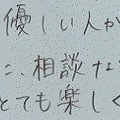 優しい人か
に、相談な
とても楽しく